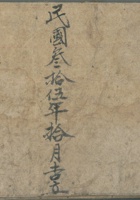 民國叁拾伍年拾月吉立